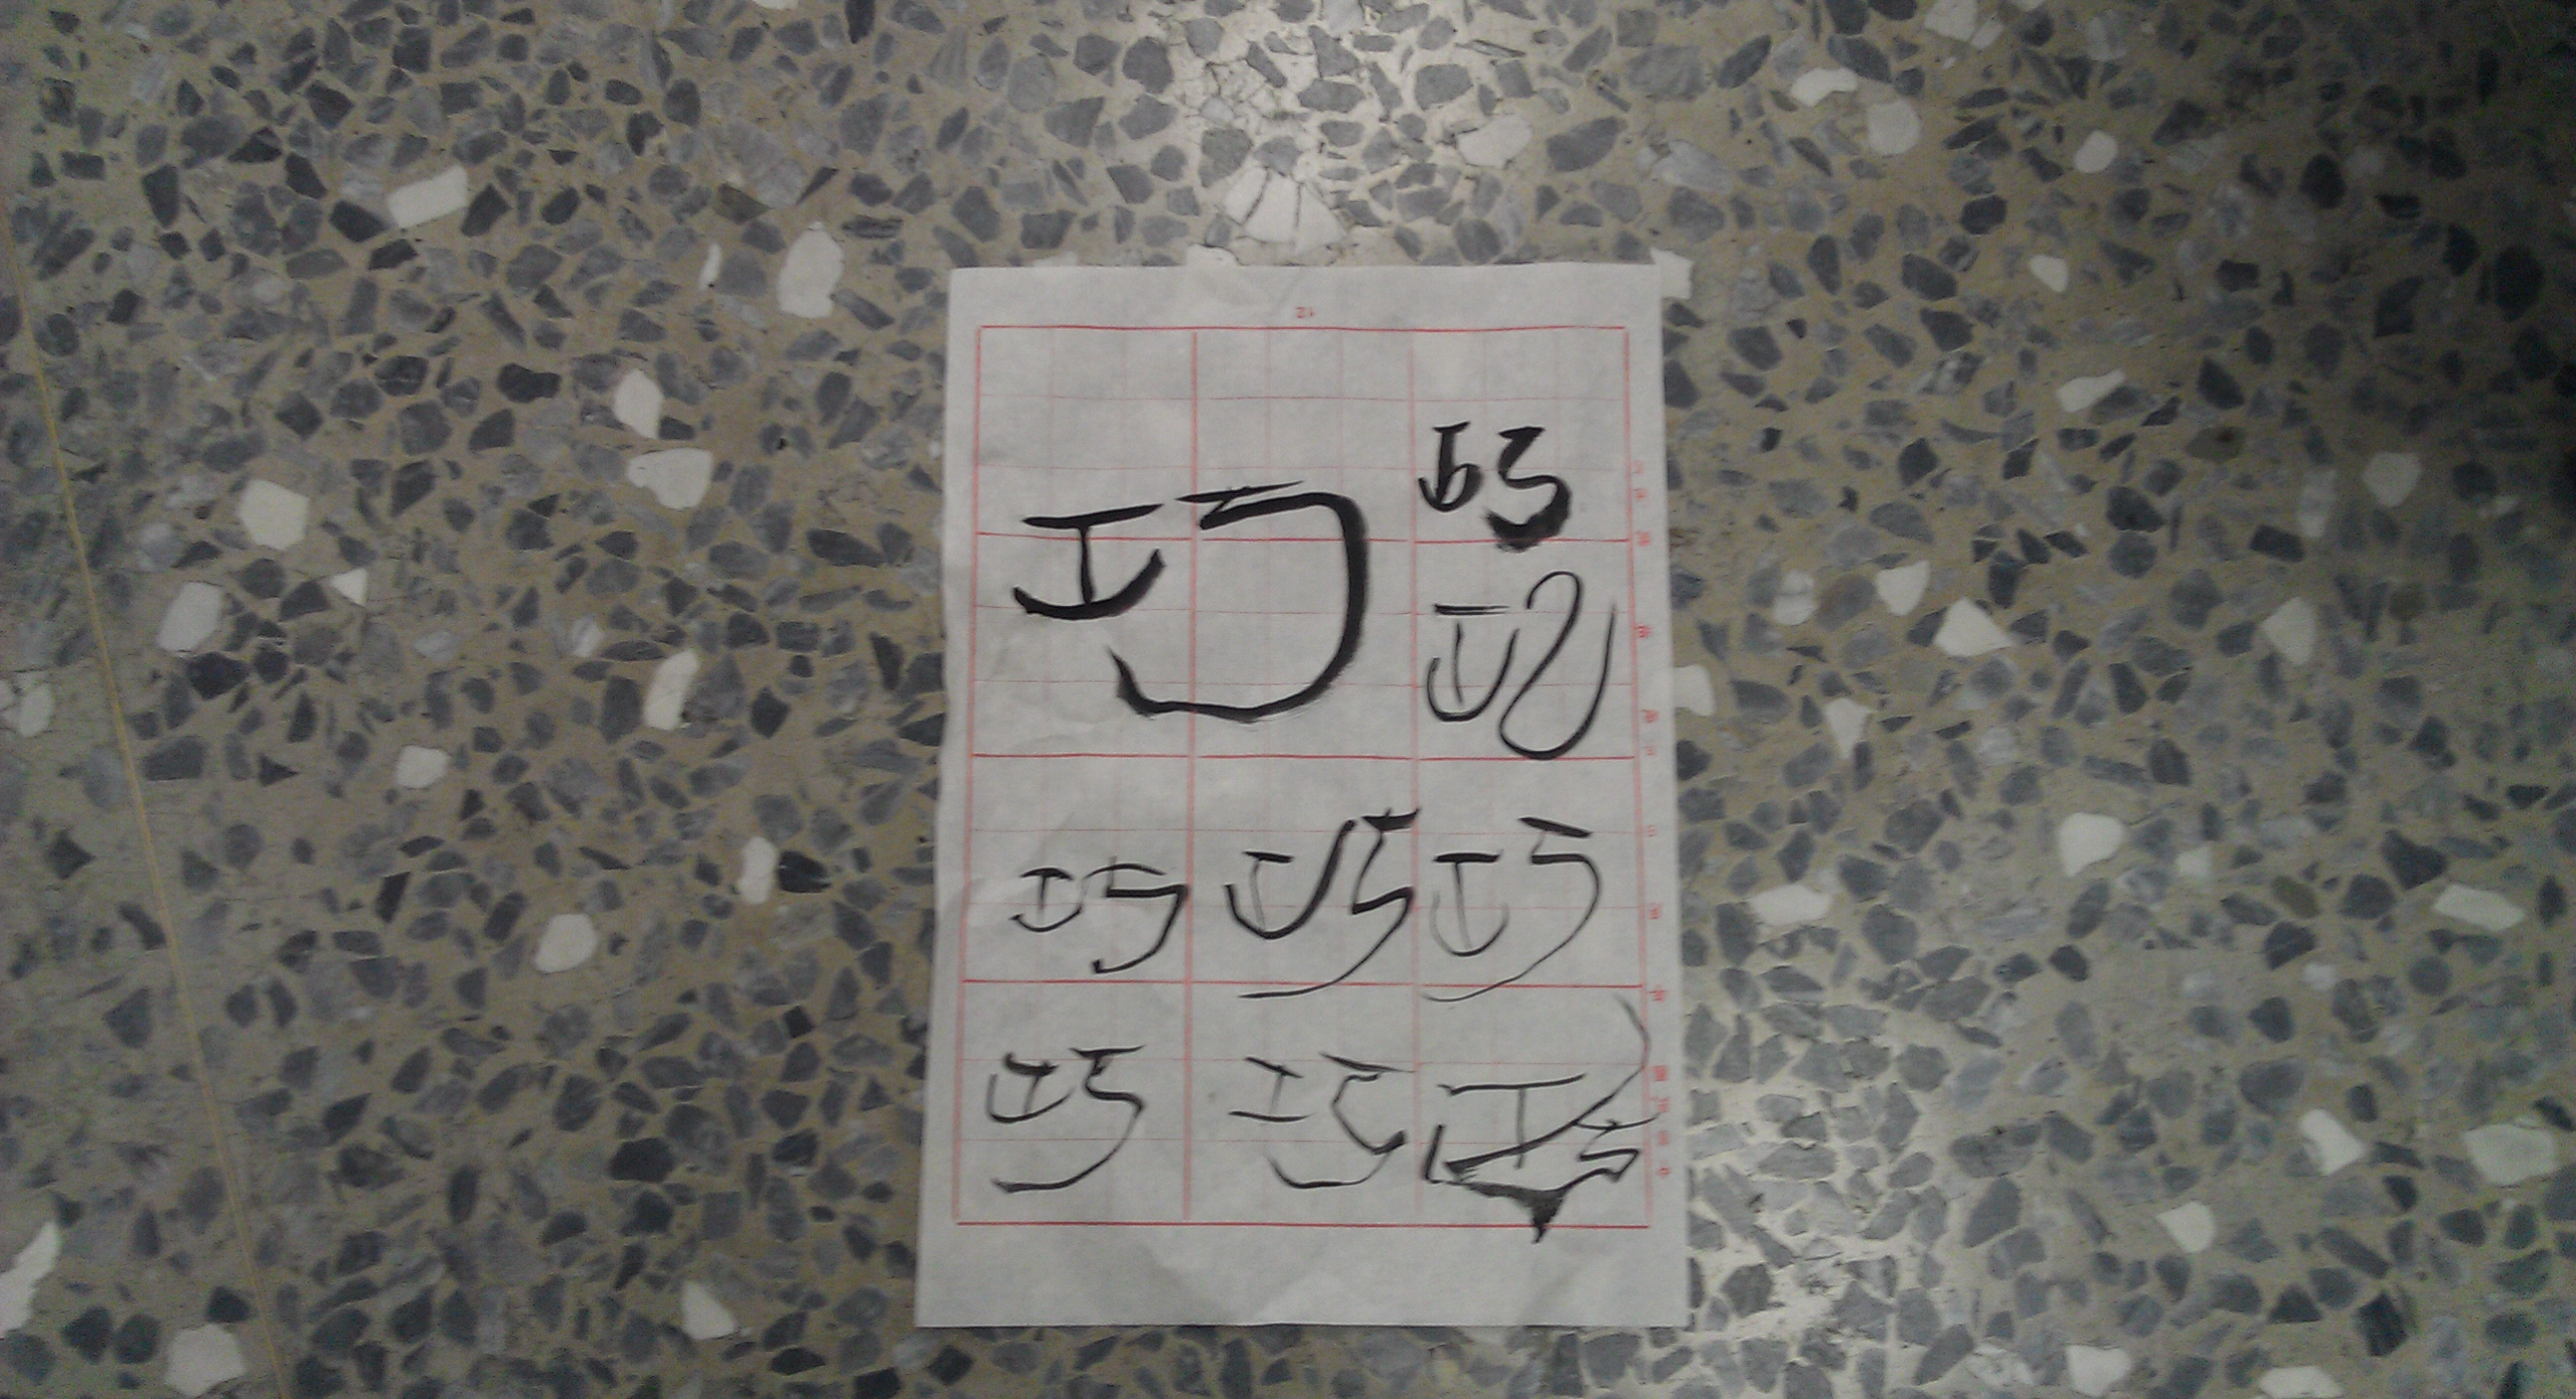 巧 巧
巧
巧 巧 巧
巧 巧 巧